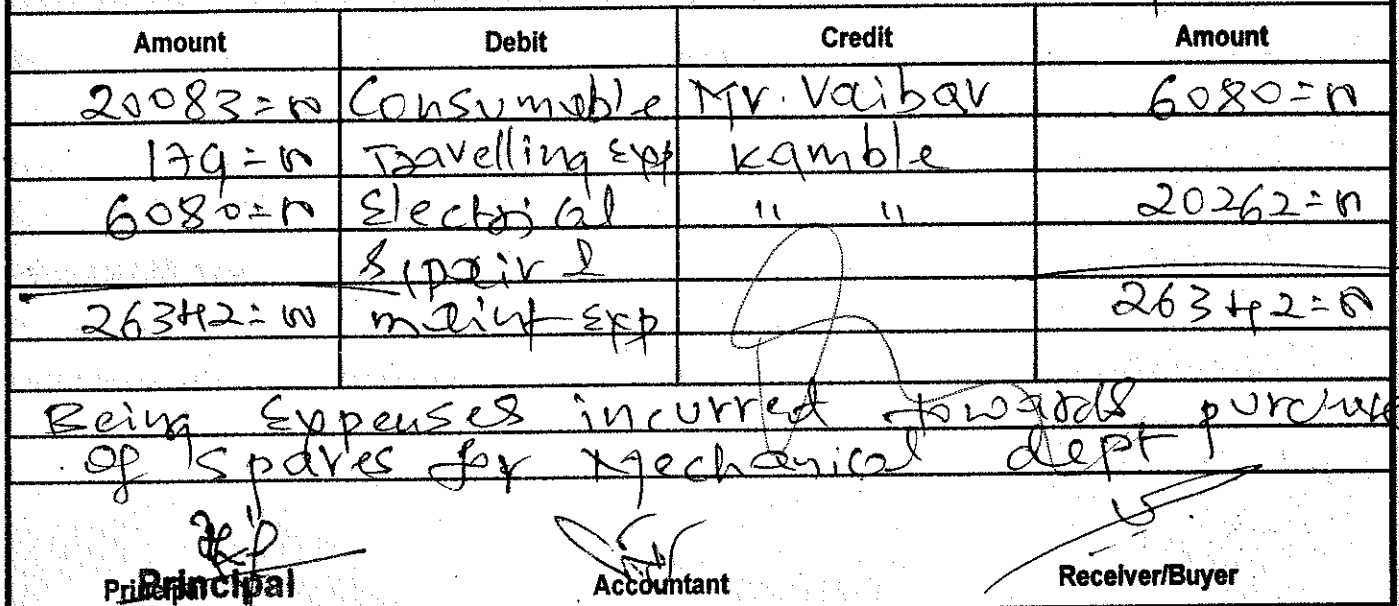 Amount Debit Credit Amount
20083=00 Consumable Mr. Vaibav 6080=00
179=00 Travelling Exp Kamble
6080=00 Electrical " " 20262=00
26342=00 maint Exp 26342=00
Being Expenses incurred towards purchase
of spares for Mechanical dept
Principal Principal Accountant Receiver/Buyer